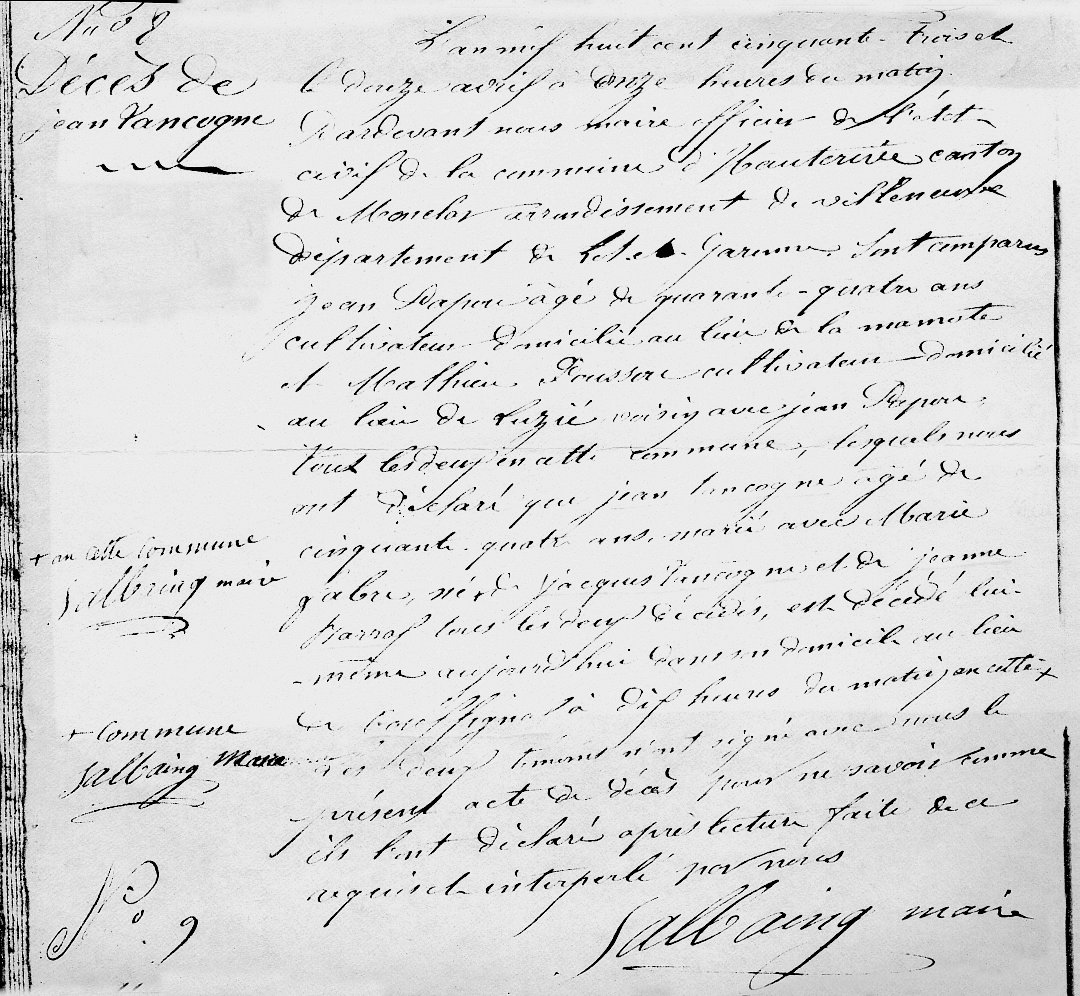 No 8
Décès de
jean Vancogne
L'an mil huit cent cinquante-trois et
le douze avril à onze heures du matin
Pardevant nous maire officier de l'état-
civil de la commune d'Hauterive canton
de Monclar arrondissement de villeneuve
département de Lot et Garonne, sont comparus
jean Dapou âgé de quarante-quatre ans
cultivateur domicilié au lieu de la
et Mathieu cultivateur domicilié
au lieu de voisin avec jean Dapou
tous les deux en cette commune, lesquels nous
ont déclaré que jean Vancogne âgé de
cinquante-quatre ans, marié avec Marie
fabre, né de jacques Vancogne et de jeanne
tous les deux décédés, est décédé lui-
-même aujourd'hui dans son domicile au lieu
de à dix heures du matin en cette +
Les deux témoins n'ont signé avec nous le
présent acte de décès pour ne savoir comme
ils l'ont déclaré après lecture faite de ce
requis et interpellé par nous
Salbaing maire
+ en cette commune
Salbaing maire
+ commune
Salbaing Maire
No 9